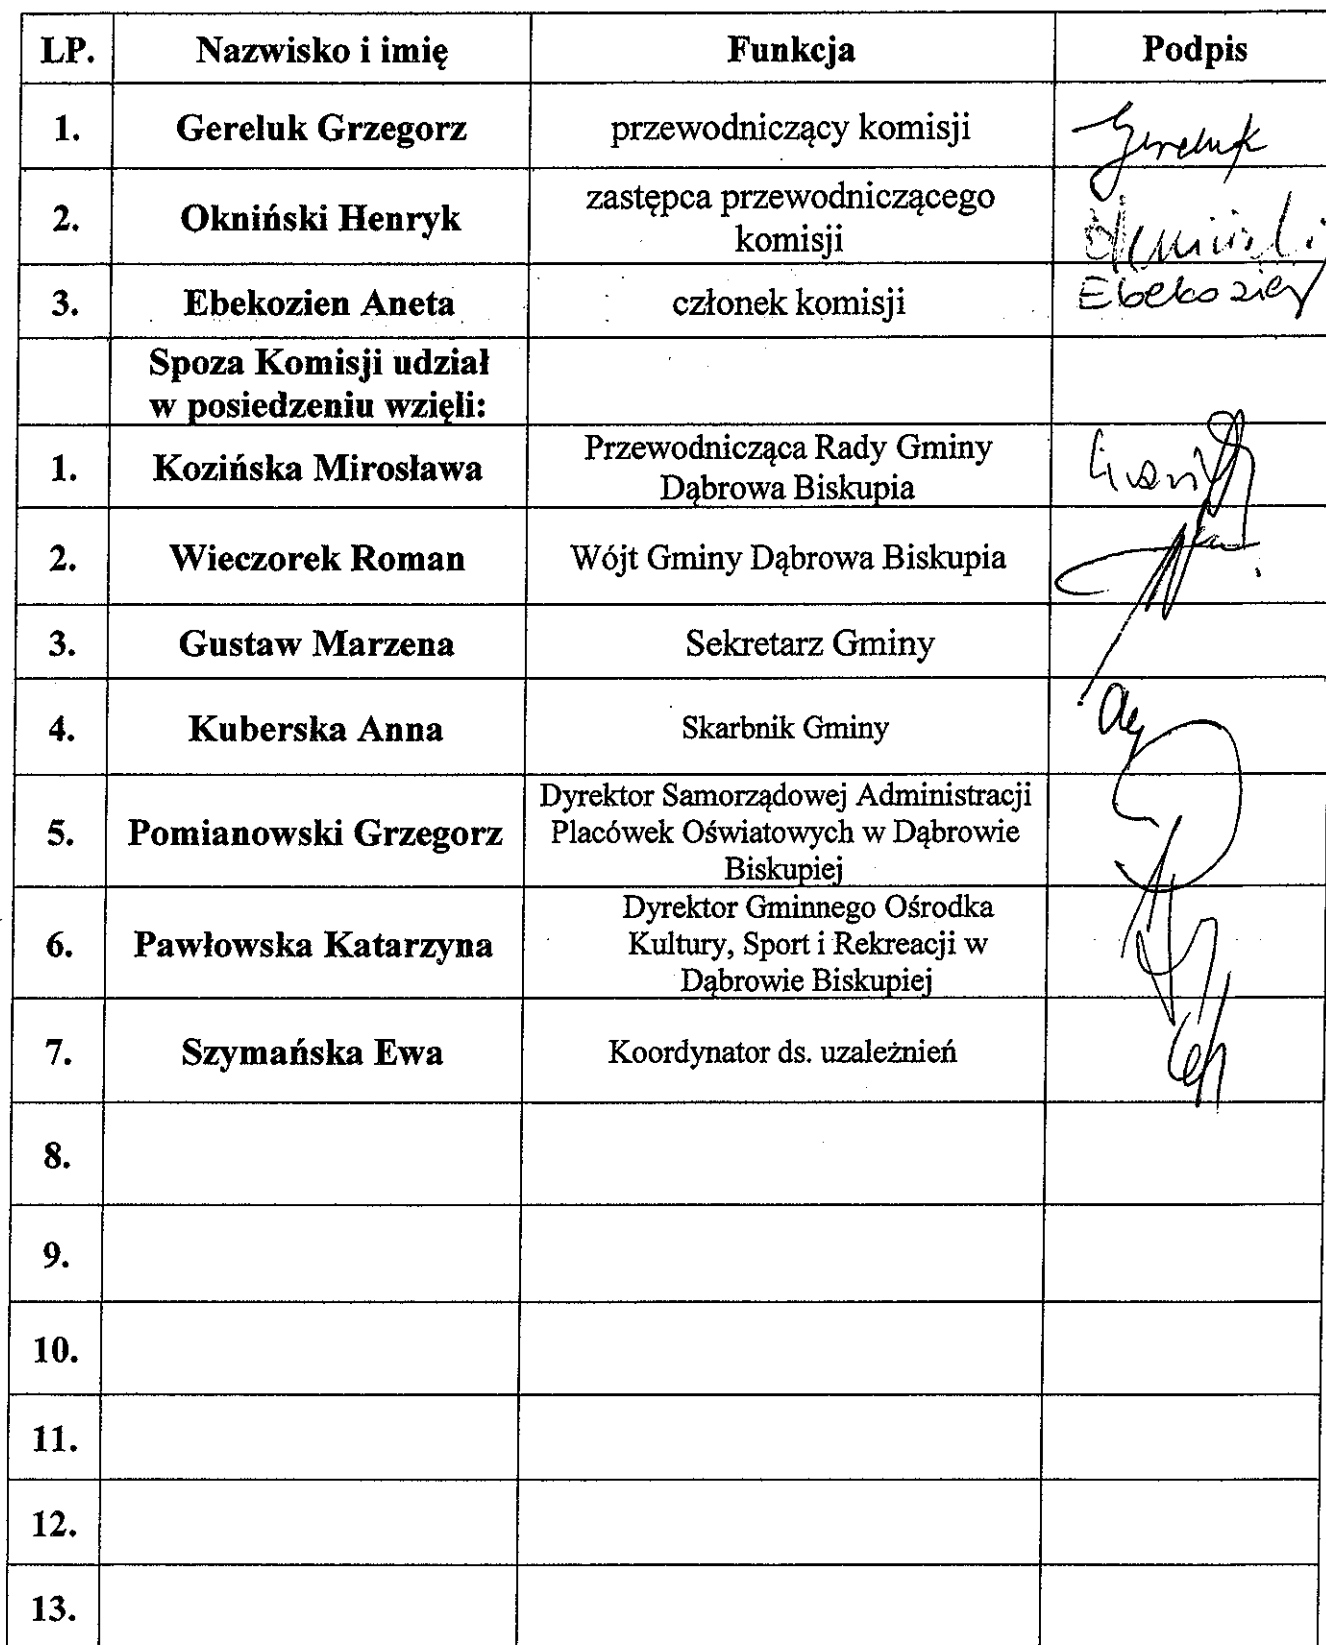 LP. Nazwisko i imię Funkcja Podpis
1. Gereluk Grzegorz przewodniczący komisji Gereluk
2. Okniński Henryk zastępca przewodniczącego
komisji Okniński
3. Ebekozien Aneta członek komisji Ebekozien
Spoza Komisji udział
w posiedzeniu wzięli:
1. Kozińska Mirosława Przewodnicząca Rady Gminy
Dąbrowa Biskupia
2. Wieczorek Roman Wójt Gminy Dąbrowa Biskupia
3. Gustaw Marzena Sekretarz Gminy
4. Kuberska Anna Skarbnik Gminy
5. Pomianowski Grzegorz Dyrektor Samorządowej Administracji
Placówek Oświatowych w Dąbrowie
Biskupiej
6. Pawłowska Katarzyna Dyrektor Gminnego Ośrodka
Kultury, Sport i Rekreacji w
Dąbrowie Biskupiej
7. Szymańska Ewa Koordynator ds. uzależnień
8.
9.
10.
11.
12.
13.